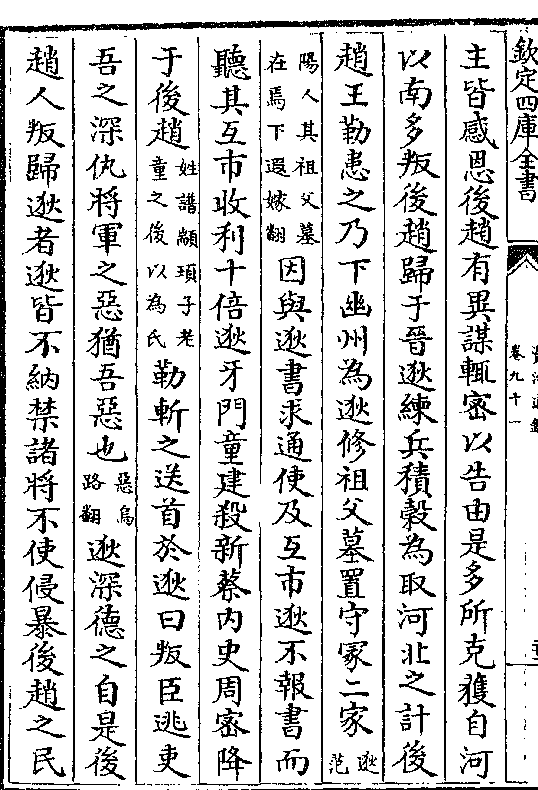 欽定四庫全書
卷九十一
主皆感恩後趙有異謀輒密以告由是多所克獲自河
以南多叛後趙歸于晉逖練兵積穀為取河北之計後
趙王勒患之乃下幽州為逖修祖父墓置守冢二家逖范
陽人其祖父墓在焉下遐嫁翻因與逖書求通使及互市逖不報書而
聽其互市收利十倍逖牙門童建殺新蔡内史周密降
于後趙姓譜顓頊子老童之後以為氏勒斬之送首於逖曰叛臣逃吏
吾之深仇將軍之惡猶吾惡也惡烏路翻逖深德之自是後
趙人叛歸逖者逖皆不納禁諸將不使侵暴後趙之民